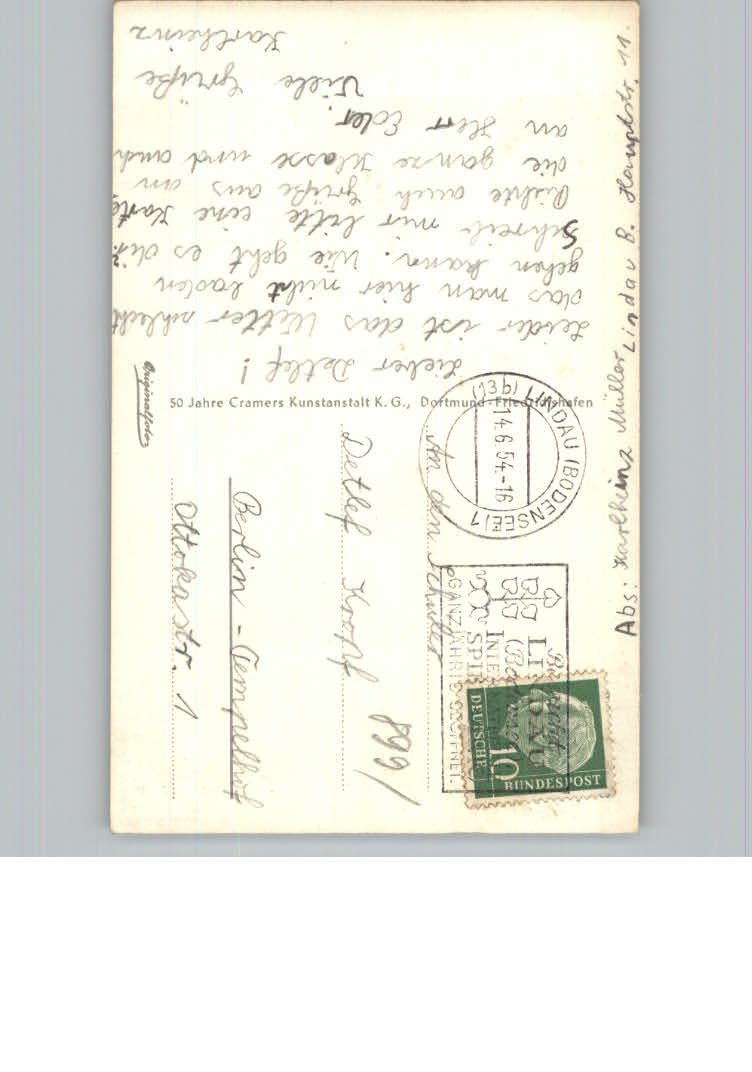 Lieber Detlef!
Leider ist das Wetter schlecht
das man hier nicht baden
gehen kann. Wie geht es dir.
Schreib mir bitte eine Karte
Richte auch Grüße aus an
die ganze Klasse und auch
an Herr Eder.
Viele Grüße
Karlheinz
Abs: Karlheinz Müller Lindau B. Hauptstr. 11.
Originalfoto
50 Jahre Cramers Kunstanstalt K.G., Dortmund-Friedrichshafen
(13b) LINDAU (BODENSEE) 1
14.6.54.-16
Besucht
LINDAU
(Bodensee)
SPIE
GANZJÄHRIG GEÖFFNET
DEUTSCHE
BUNDESPOST
10
An den Schüler
Detlef Kropf
899/
Berlin-Tempelhof
Ottokastr. 1